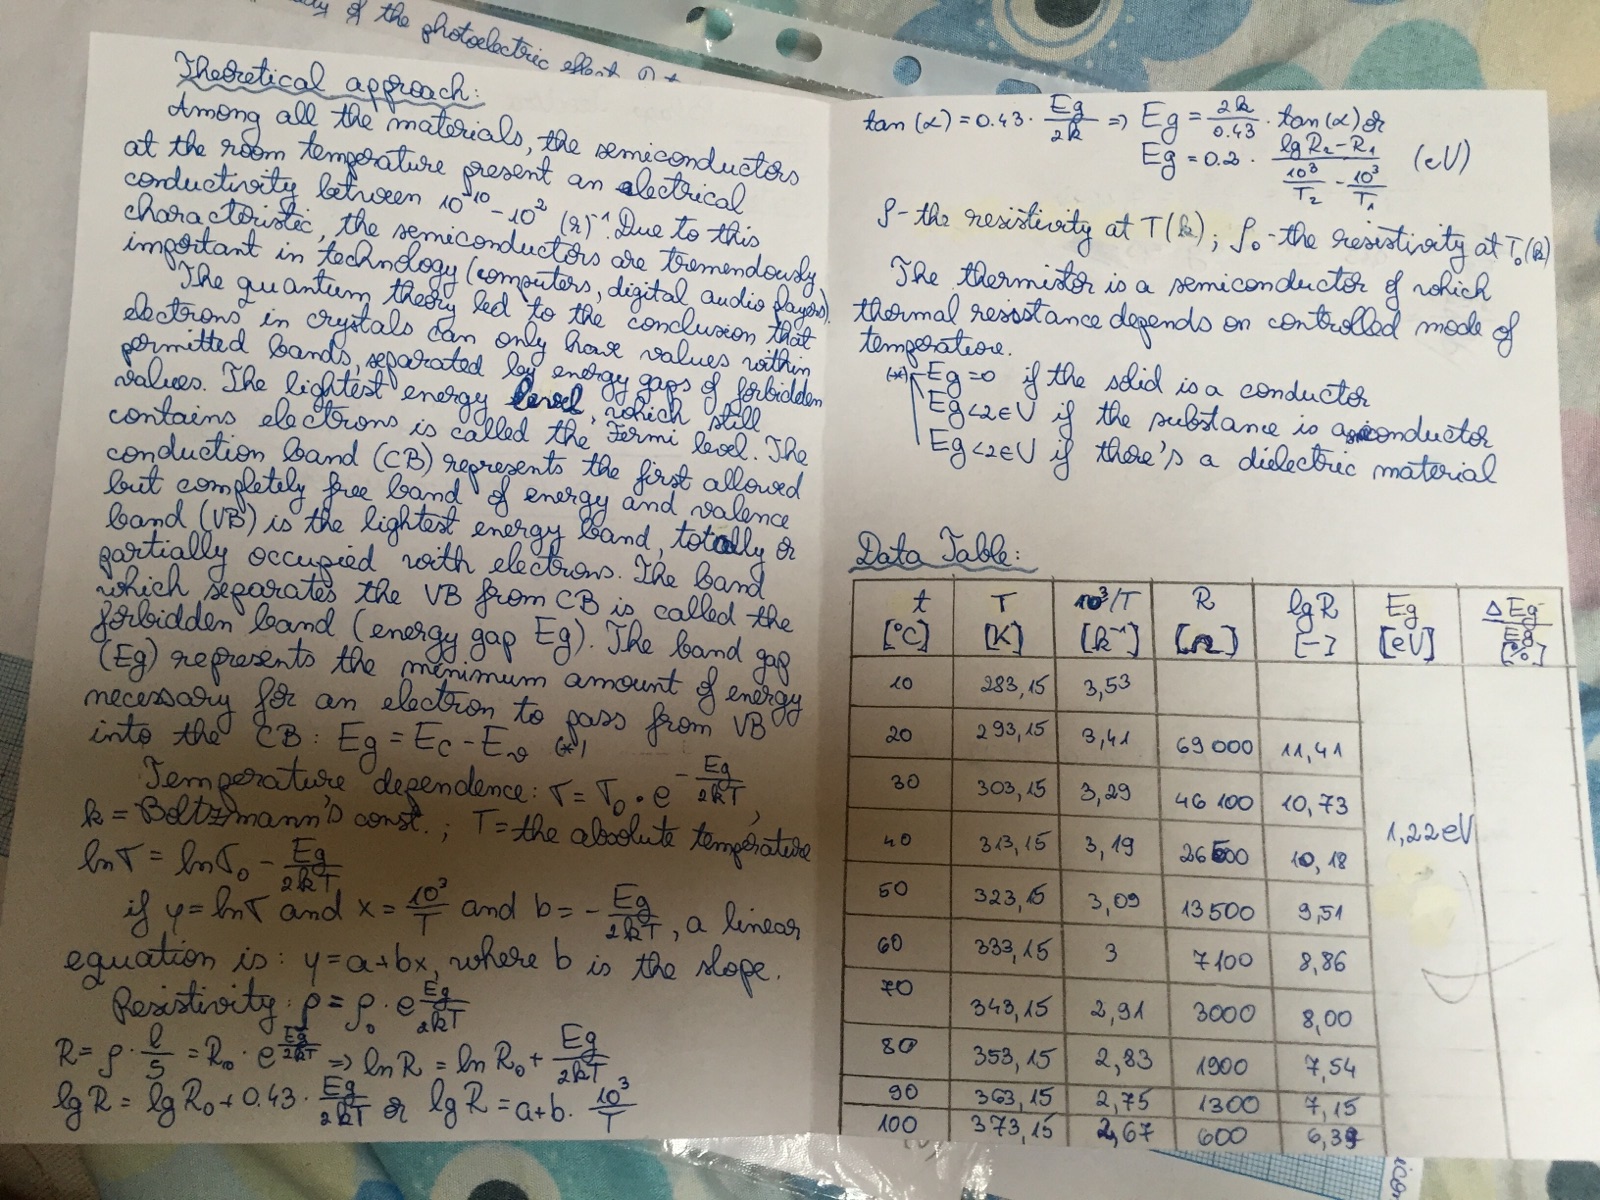 of the photoelectric effect
Theoretical approach:
Among all the materials, the semiconductors
at the room temperature present an electrical
conductivity between 10⁻¹⁰ - 10² (Ω)⁻¹. Due to this
characteristic, the semiconductors are tremendously
important in technology (computers, digital audio players).
The quantum theory led to the conclusion that
electrons in crystals can only have values within
permitted bands, separated by energy gaps of forbidden
values. The lightest energy level, which still
contains electrons is called the Fermi level. The
conduction band (CB) represents the first allowed
but completely free band of energy and valence
band (VB) is the lightest energy band, totally or
partially occupied with electrons. The band
which separates the VB from CB is called the
forbidden band (energy gap Eg). The band gap
(Eg) represents the minimum amount of energy
necessary for an electron to pass from VB
into the CB: Eg = Ec - Ev (*)
Temperature dependence: σ = σ₀ · e^(-Eg/2kT),
k = Boltzmann's const.; T = the absolute temperature
lnσ = lnσ₀ - Eg/2kT
if y = lnσ and x = 10³/T and b = - Eg/2kT, a linear
equation is: y = a+bx, where b is the slope.
Resistivity: ρ = ρ₀ · e^(Eg/2kT)
R = ρ · l/S = R₀ · e^(Eg/2kT) => lnR = lnR₀ + Eg/2kT
lgR = lgR₀ + 0.43 · Eg/2kT or lgR = a+b · 10³/T
tan(α) = 0.43 · Eg/2k => Eg = 2k/0.43 · tan(α) or
Eg = 0.2 · (lgR₂ - R₁)/(10³/T₂ - 10³/T₁) (eV)
ρ - the resistivity at T(k); ρ₀ - the resistivity at T₀(k)
The thermistor is a semiconductor of which
thermal resistance depends on controlled mode of
temperature.
(*) Eg = 0 if the solid is a conductor
Eg < 2eV if the substance is a semiconductor
Eg < 2eV if there's a dielectric material
Data Table:
t [°C] T [K] 10³/T [k⁻¹] R [Ω] lgR [-] Eg [eV] ΔEg/Eg [%]
10 283,15 3,53
20 293,15 3,41 69 000 11,41
30 303,15 3,29 46 100 10,73
40 313,15 3,19 26 500 10,18
1,22 eV
50 323,15 3,09 13 500 9,51
60 333,15 3 7100 8,86
70 343,15 2,91 3000 8,00
80 353,15 2,83 1900 7,54
90 363,15 2,75 1300 7,15
100 373,15 2,67 600 6,39